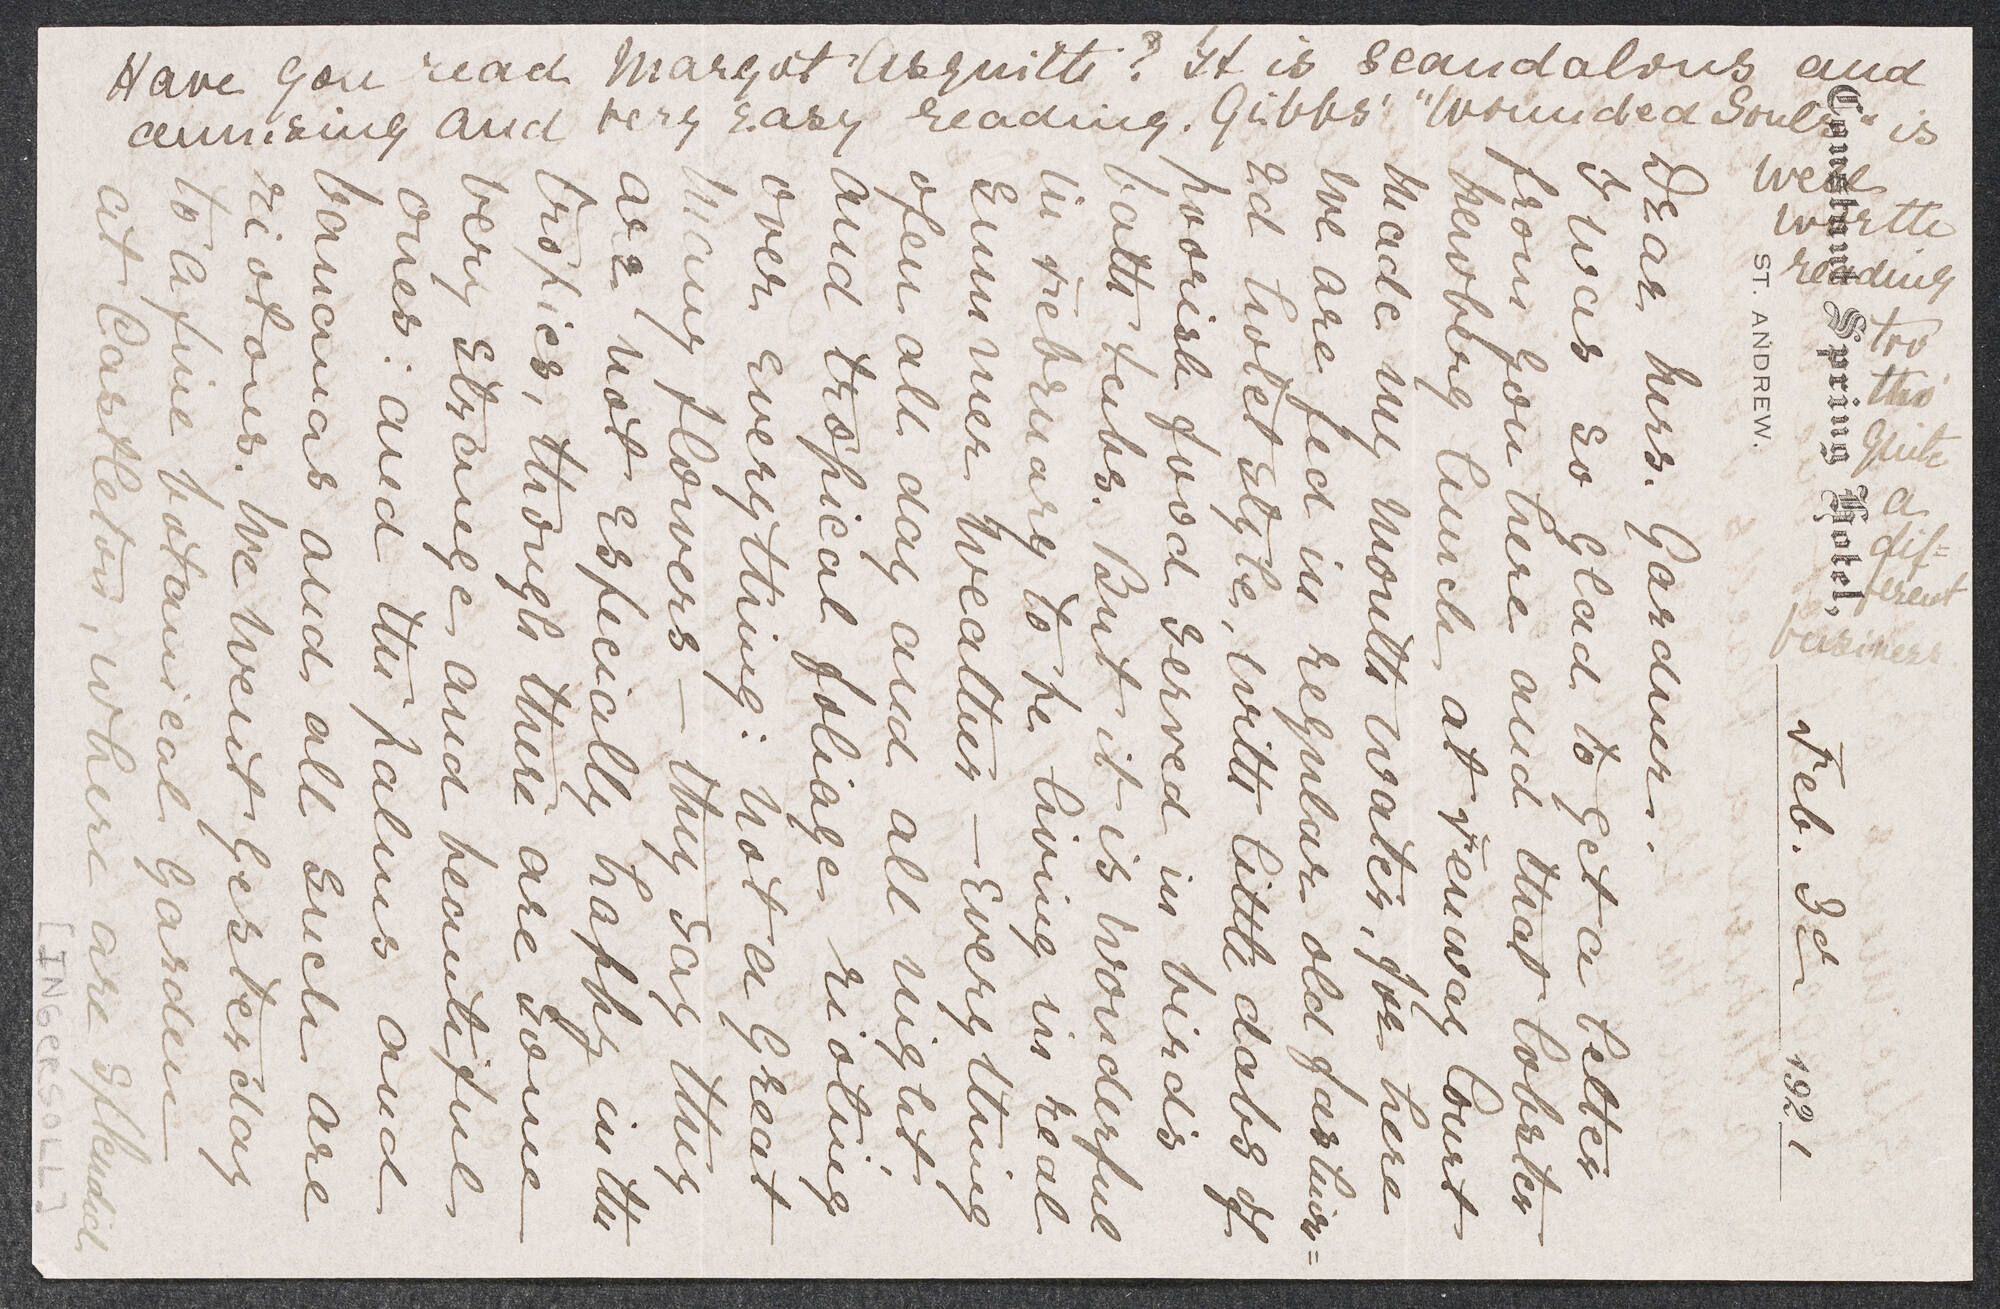 Constant Spring Hotel,
ST. ANDREW.
Feb. 3d 1921
Dear Mrs. Gardner.
I was so glad to get a letter
from you here and that lobster
newburg lunch at Fenway Court
made my mouth water, for here
we are fed in regular old fashion=
ed hotel style, with little dabs of
poorish food served in birds
bath tubs. But it is wonderful
in February to be living in real
summer weather — Everything
open all day and all night,
and tropical foliage rioting
over everything: not a great
many flowers — they say they
are not especially happy in the
tropics, though there are some
very strange and beautiful
ones: and the palms and
bananas and all such are
riotous. We went yesterday
to a fine botanical garden
at Castleton, where are splendid
Have you read Margot Asquith? It is scandalous and
amusing and very easy reading. Gibbs' "Wounded Souls" is
well
worth
reading
too
tho'
quite
a
dif=
ferent
business
[INGERSOLL]